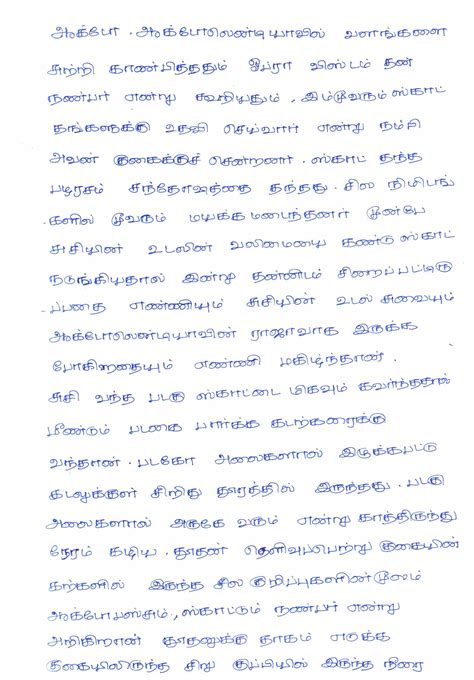 ஆக்போ. ஆக்போலெண்டியாவில் வளங்களை
சுற்றி காண்பித்ததும் தன்
நண்பர் என்று கூறியதும், இம்மூவரும் ஸ்காட்
தங்களுக்கு உதவி செய்வார் என்று நம்பி
அவன் குகைக்குச் சென்றனர். ஸ்காட் தந்த
பழரசம் சந்தோஷத்தை தந்தது. சில நிமிடங்
களில் மூவரும் மயக்க மடைந்தனர் முன்பே
சுசியின் உடலின் வலிமையை கண்டு ஸ்காட்
நடுங்கியதால் இன்று தன்னிடம் சிறைப்பட்டிரு
ப்பதை எண்ணியும் சுசியின் உடல் சுவையும்
ஆக்போலெண்டியாவின் ராஜாவாக இருக்க
போகிறதையும் எண்ணி மகிழ்ந்தான்.
சுசி வந்த படகு ஸ்காட்டை மிகவும் கவர்ந்ததால்
மீண்டும் படகை பார்க்க கடற்கரைக்கு
வந்தான். படகோ அலைகளால் இழுக்கபட்டு
கடலுக்குள் சிறிது தூரத்தில் இருந்தது. படகு
அலைகளால் அருகே வரும் என்று காத்திருந்து
நேரம் கடிய. தூதன் தெளிவுப்பெற்று குகையின்
கற்களில் இருந்த சில குறிப்புகளின் மூலம்
ஆக்போபஸ்சும், ஸ்காட்டும் நண்பர் என்று
அறிகிறான் தூதனுக்கு தாகம் எடுக்க
குகையிலிருந்த சிறு குப்பியில் இருந்த நீரை